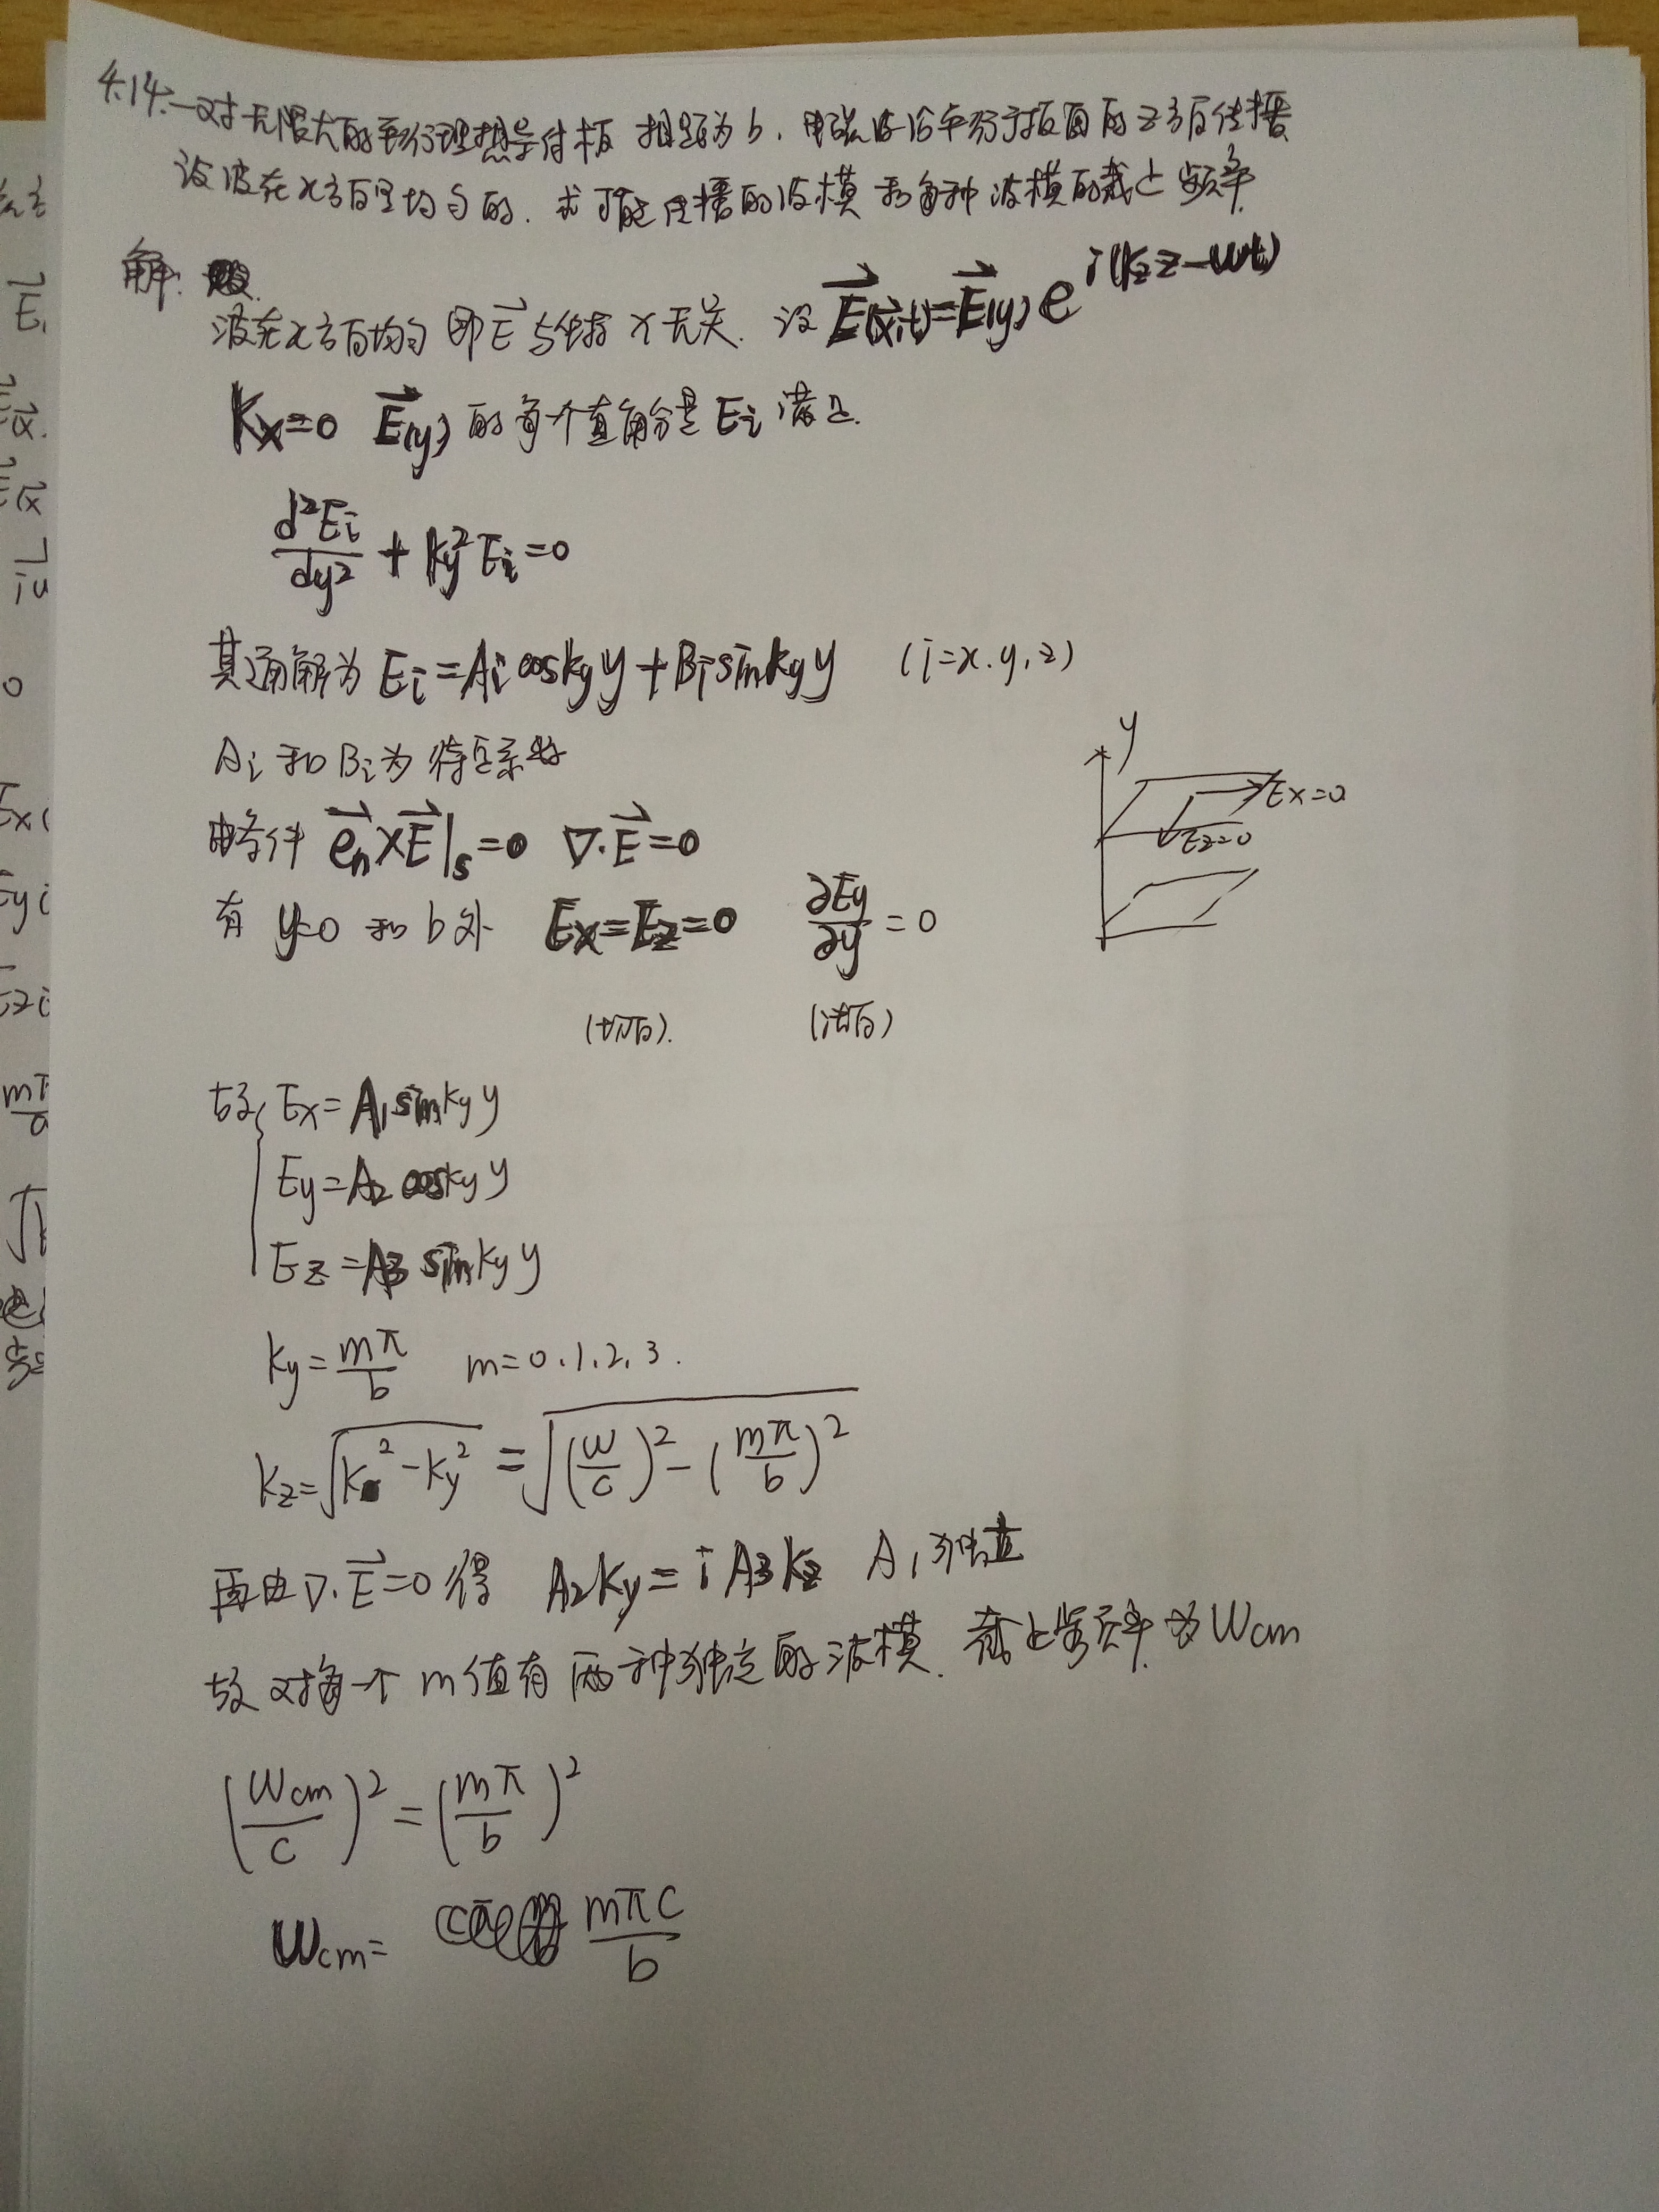 4.14. 一对无限大的平行理想导体板 相距为b. 电磁波沿平行于板面的z方向传播
设波在x方向是均匀的. 求可能传播的波模 和每种波模的截止频率
解:
波在x方向均匀 即E⃗ 与坐标 x 无关. 设 E⃗(x⃗,t)=E⃗(y) e^{i(kz z-ωt)}
Kx=0 E⃗(y) 的每个直角分量 Ei 满足.
d²Ei/dy² + ky² Ei=0
其通解为 Ei=Ai cosky y+Bi sinky y (i=x.y,z)
Ai 和 Bi为 待定系数
由条件 e⃗n×E⃗|s=0 ∇·E⃗=0
有 y=0 和 b 处 Ex=Ez=0 ∂Ey/∂y=0
(切向). (法向)
y
Ex=0
Ez=0
故{ Ex=A1 sinky y
Ey=A2 cosky y
Ez=A3 sinky y
ky=mπ/b m=0.1.2.3.
kz=√(k²-ky²) =√((ω/c)²-(mπ/b)²)
再由∇·E⃗=0得 A2ky=iA3kz A1独立
故 对每一个 m值有 两种独立的波模. 截止频率为ωcm
(ωcm/c)²=(mπ/b)²
ωcm= mπc/b